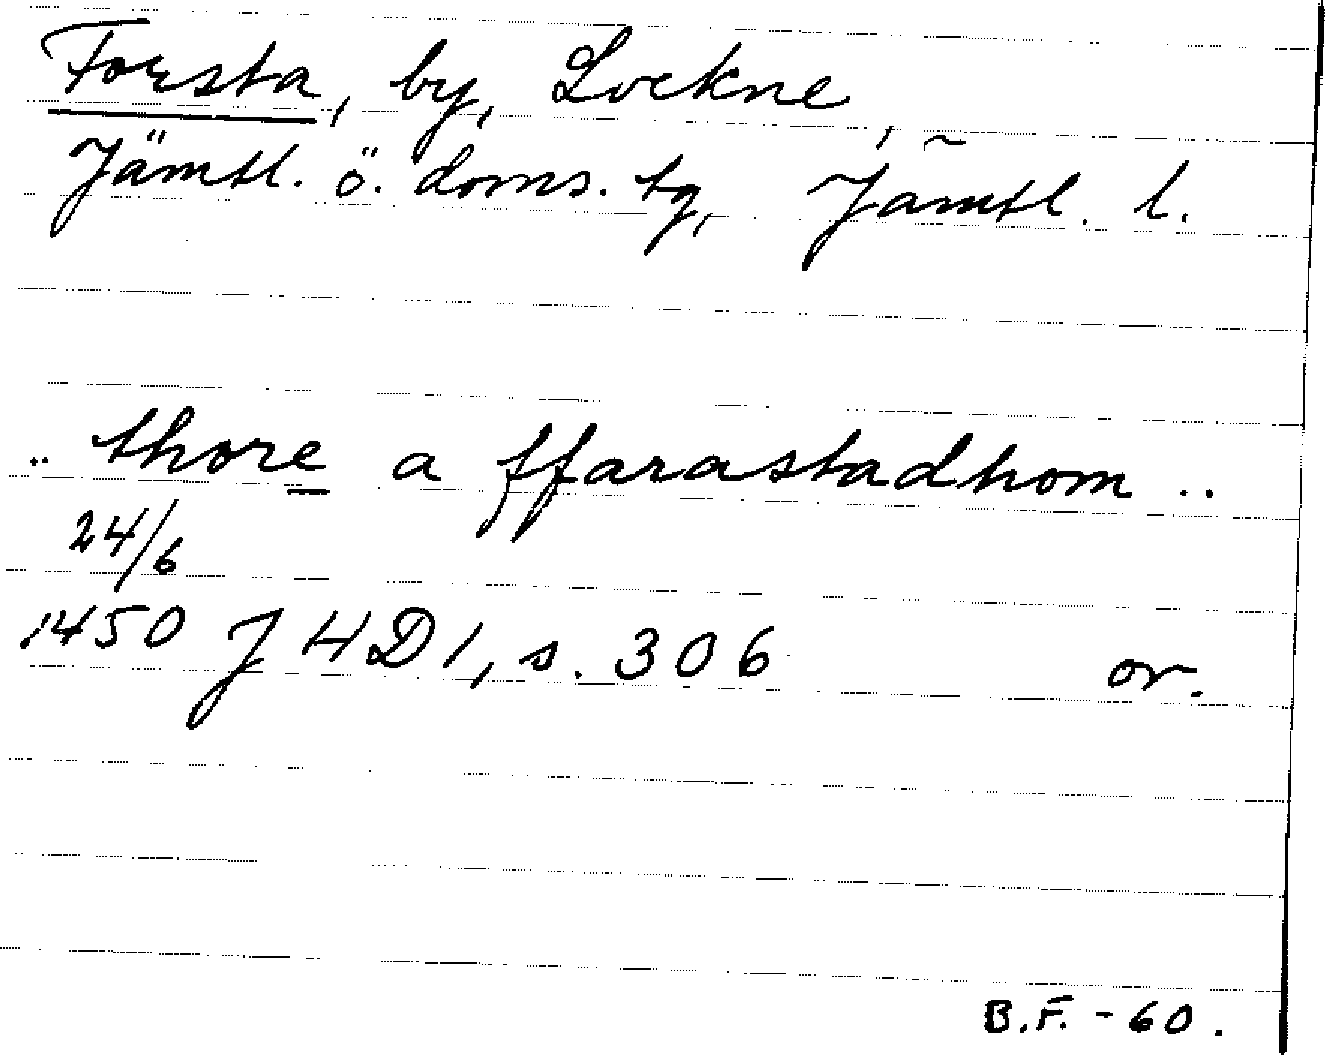 Forsta, by, Lockne,
Jämtl. ö. doms. tg, Jämtl. l.
.. thore a ffarastadhom ..
24/6
1450 JHD 1, s. 306 or.
B.F. - 60.